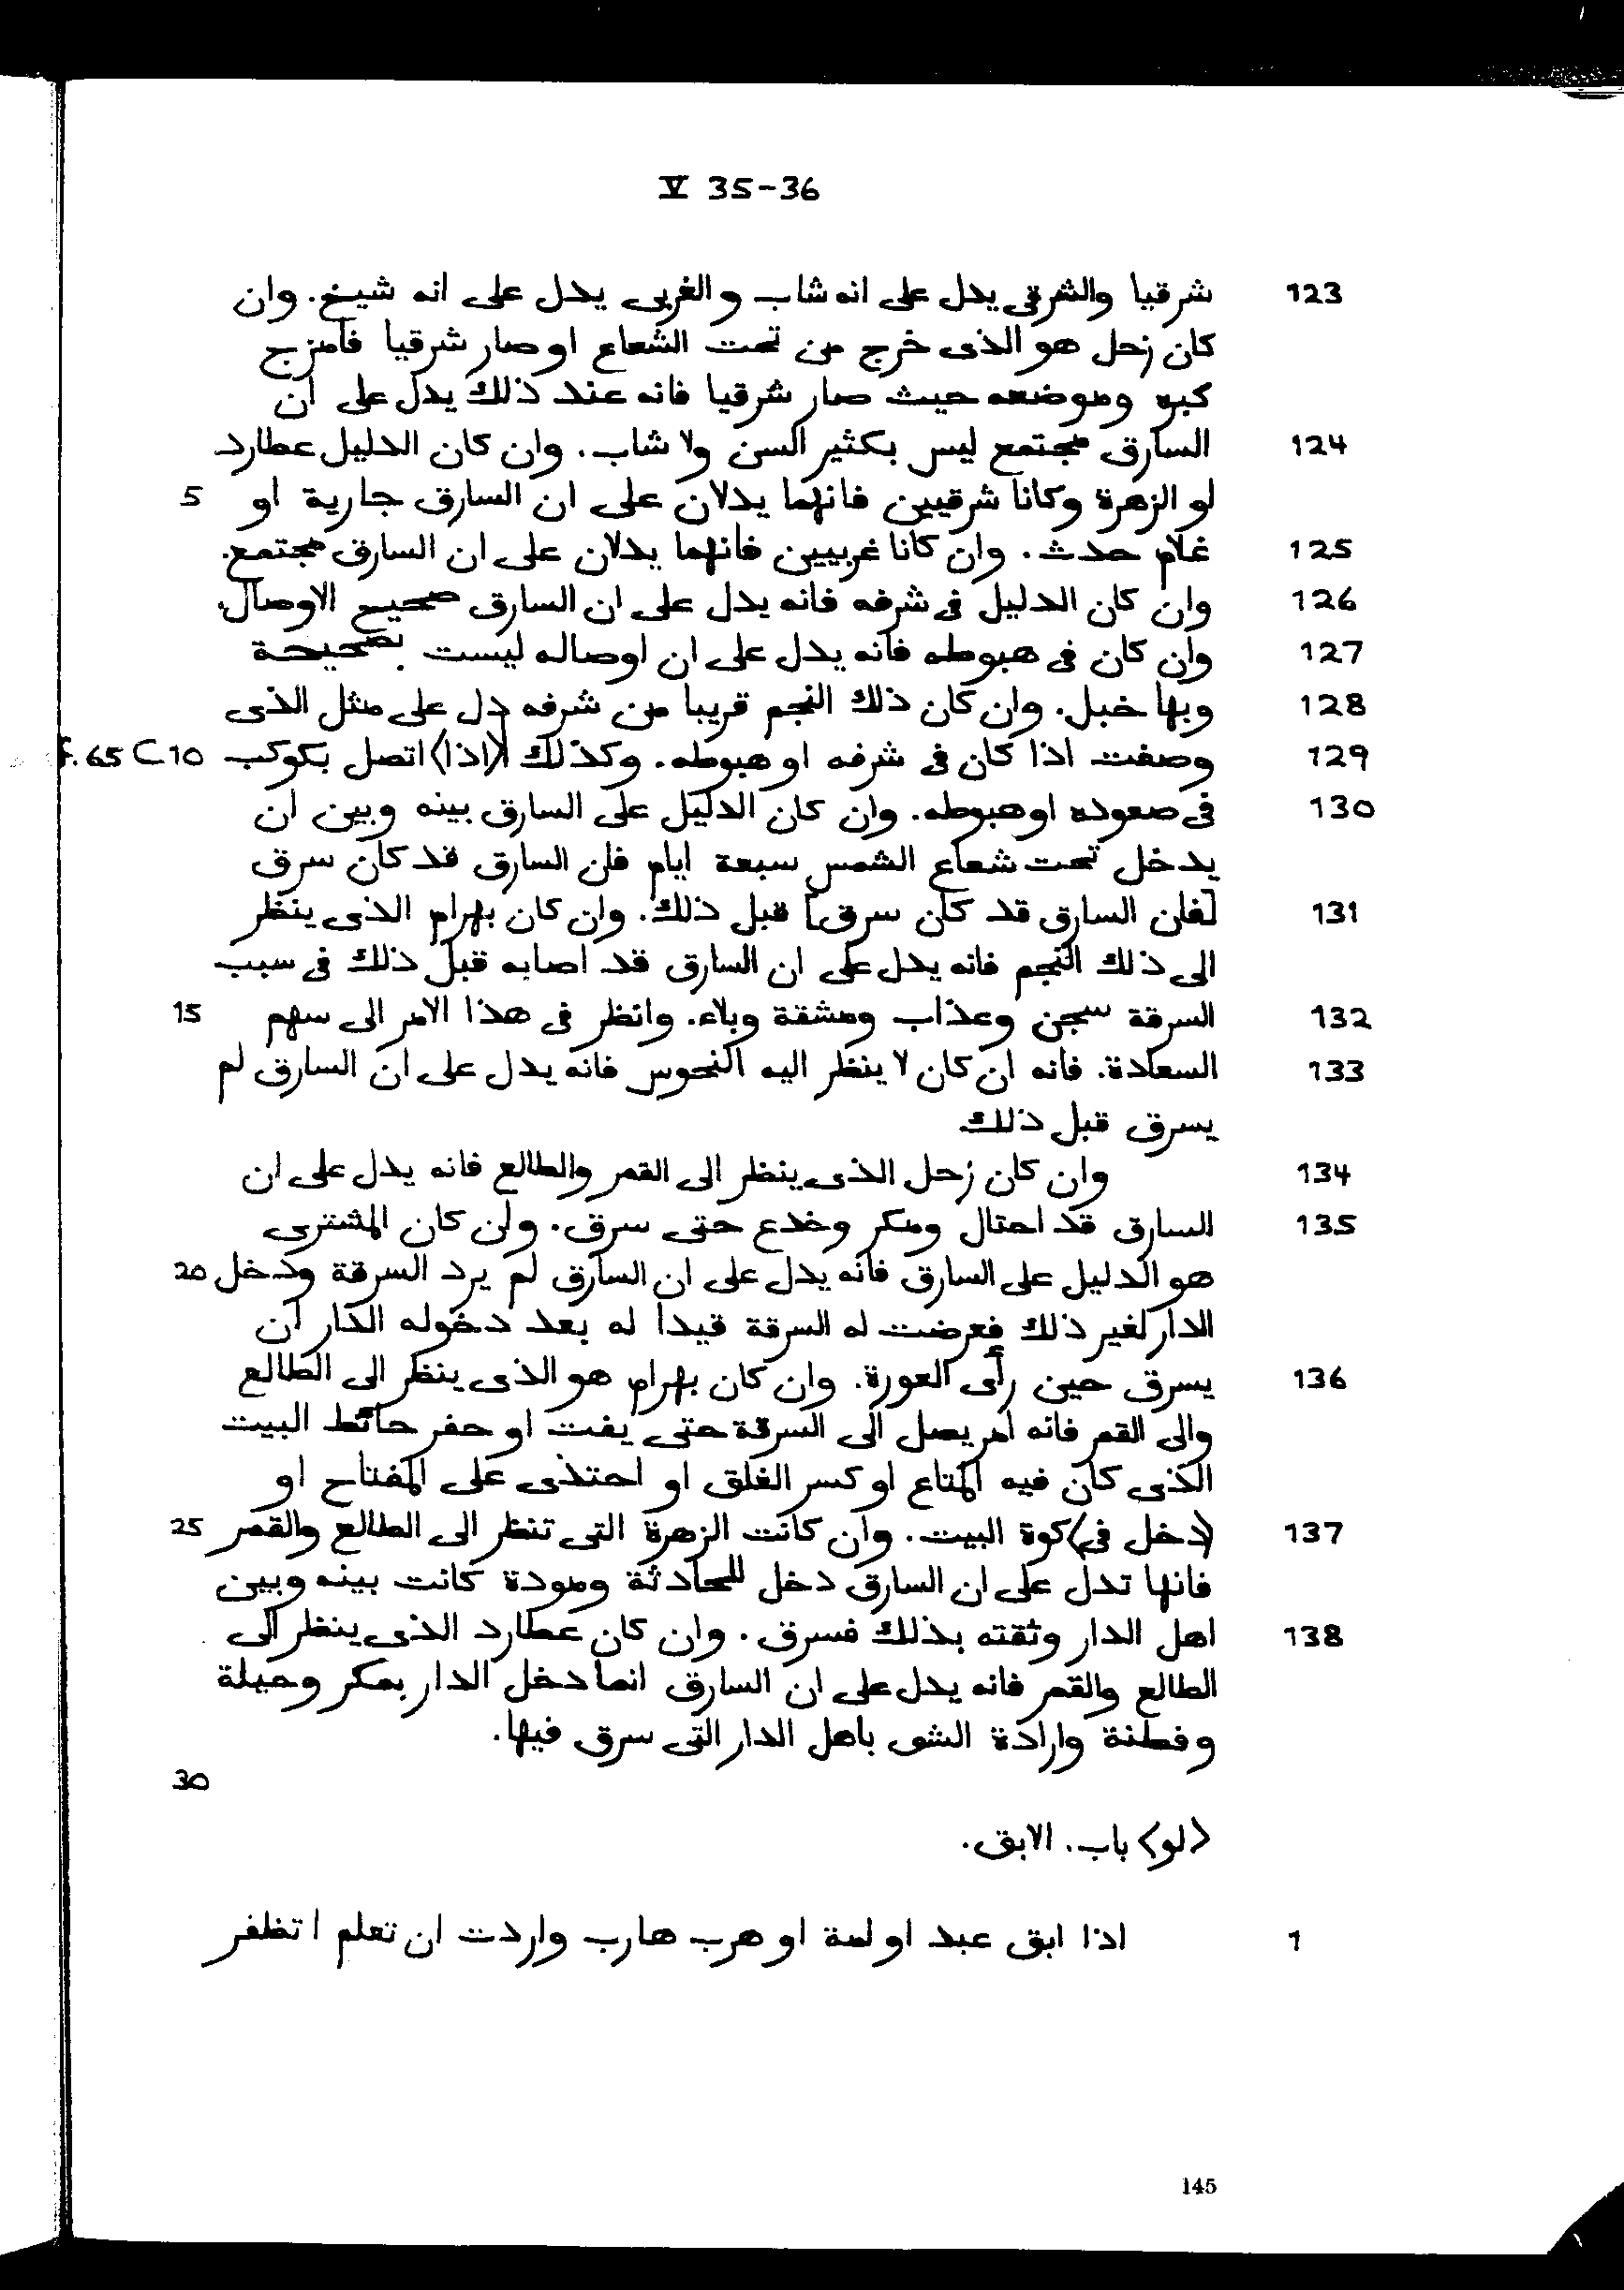 V 35-36
123 شرقيا والشرقى يدل على انه شاب والغربى يدل على انه شيخ. وان
كان زحل هو الذى خرج من تحت الشعاع او صار شرقيا فامزج
كبره وموضعه حيث صار شرقيا فانه عند ذلك يدل على ان
124 السارق مجتمع ليس بكثير السن ولا شاب. وان كان الدليل عطارد
او الزهرة وكانا شرقيين فانهما يدلان على ان السارق جارية او 5
125 غلام حدث. وان كانا غربيين فانهما يدلان على ان السارق مجتمع.
126 وان كان الدليل فى شرفه فانه يدل على ان السارق صحيح الاوصال،
127 وان كان فى هبوطه فانه يدل على ان اوصاله ليست بصحيحة
128 وبها خبل. وان كان ذلك النجم قريبا من شرفه دل على مثل الذى
129 وصفت اذا كان فى شرفه او هبوطه. وكذلك ا〈اذا〉 اتصل بكوكب 10 f. 65 C
130 فى صعوده او هبوطه. وان كان الدليل على السارق بينه وبين ان
يدخل تحت شعاع الشمس سبعة ايام فان السارق قد كان سرق
131 [فان السارق قد كان سرق] قبل ذلك. وان كان بهرام الذى ينظر
الى ذلك النجم فانه يدل على ان السارق قد اصابه قبل ذلك فى سبب
132 السرقة سجن وعذاب ومشقة وبلاء. وانظر فى هذا الامر الى سهم 15
133 السعادة. فانه ان كان لا ينظر اليه النحوس فانه يدل على ان السارق لم
يسرق قبل ذلك.
134 وان كان زحل الذى ينظر الى القمر والطالع فانه يدل على ان
135 السارق قد احتال ومكر وخدع حتى سرق. وان كان المشترى
هو الدليل على السارق فانه يدل على ان السارق لم يرد السرقة ودخل 20
الدار لغير ذلك فعرضت له السرقة فيدا له بعد دخوله الدار ان
136 يسرق حين رأى العورة. وان كان بهرام هو الذى ينظر الى الطالع
والى القمر فانه لم يصل الى السرقة حتى يفت او حفر حائط البيت
الذى كان فيه المتاع او كسر الغلق او احتذى على المفتاح او
137 〈دخل فى〉 كوة البيت. وان كانت الزهرة التى تنظر الى الطالع والقمر 25
فانها تدل على ان السارق دخل للمحادثة ومودة كانت بينه وبين
138 اهل الدار وثقته بذلك فسرق. وان كان عطارد الذى ينظر الى
الطالع والقمر فانه يدل على ان السارق انما دخل الدار بمكر وحيلة
وفطنة وارادة الشى باهل الدار التى سرق فيها.
30
〈لو〉 باب. الابق.
1 اذا ابق عبد او امة او هرب هارب واردت ان تعلم ا تظفر
145